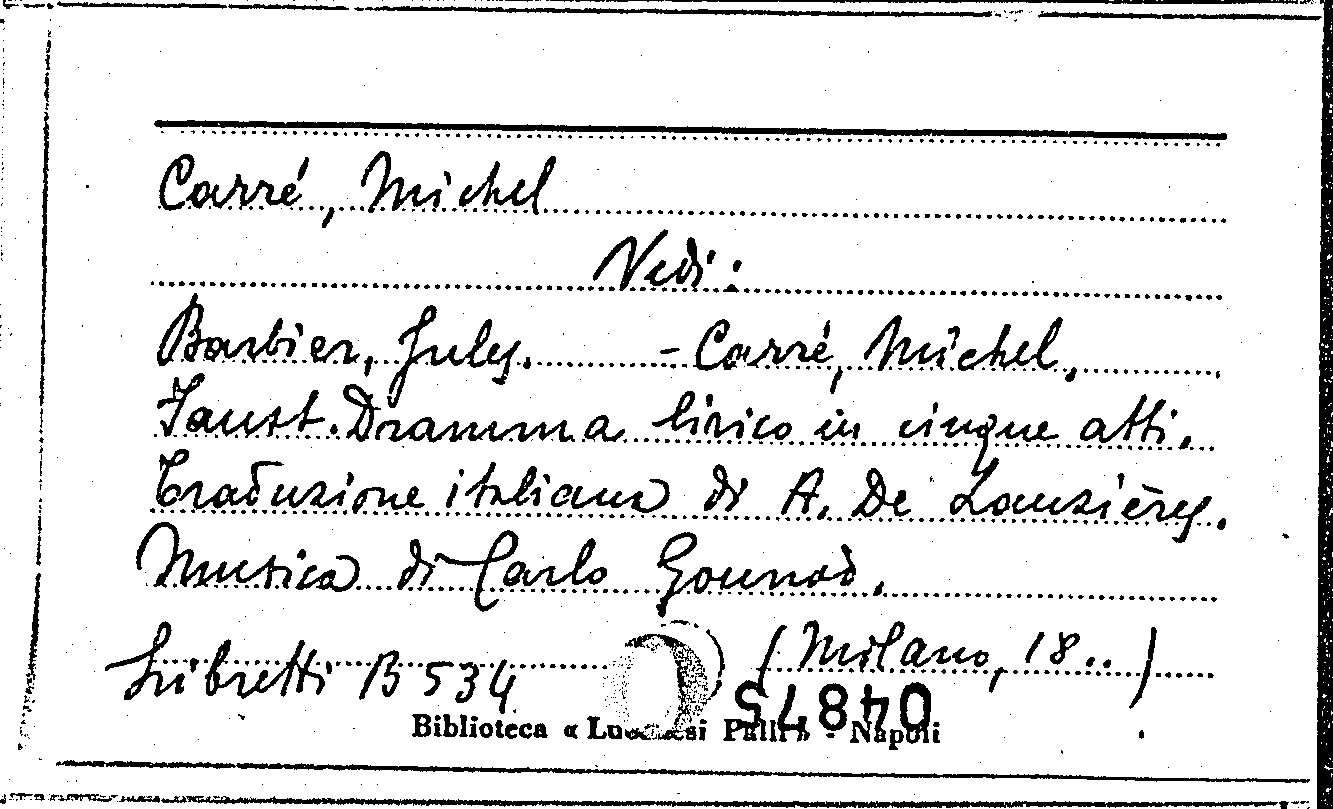 Carré, Michel
Vedi:
Barbier, Jules. - Carré, Michel.
Faust. Dramma lirico in cinque atti.
Traduzione italiana di A. De Lauzières.
Musica di Carlo Gounod.
(Milano, 18..)
Libretti B 534
04875
Biblioteca « Lucchesi Palli » - Napoli